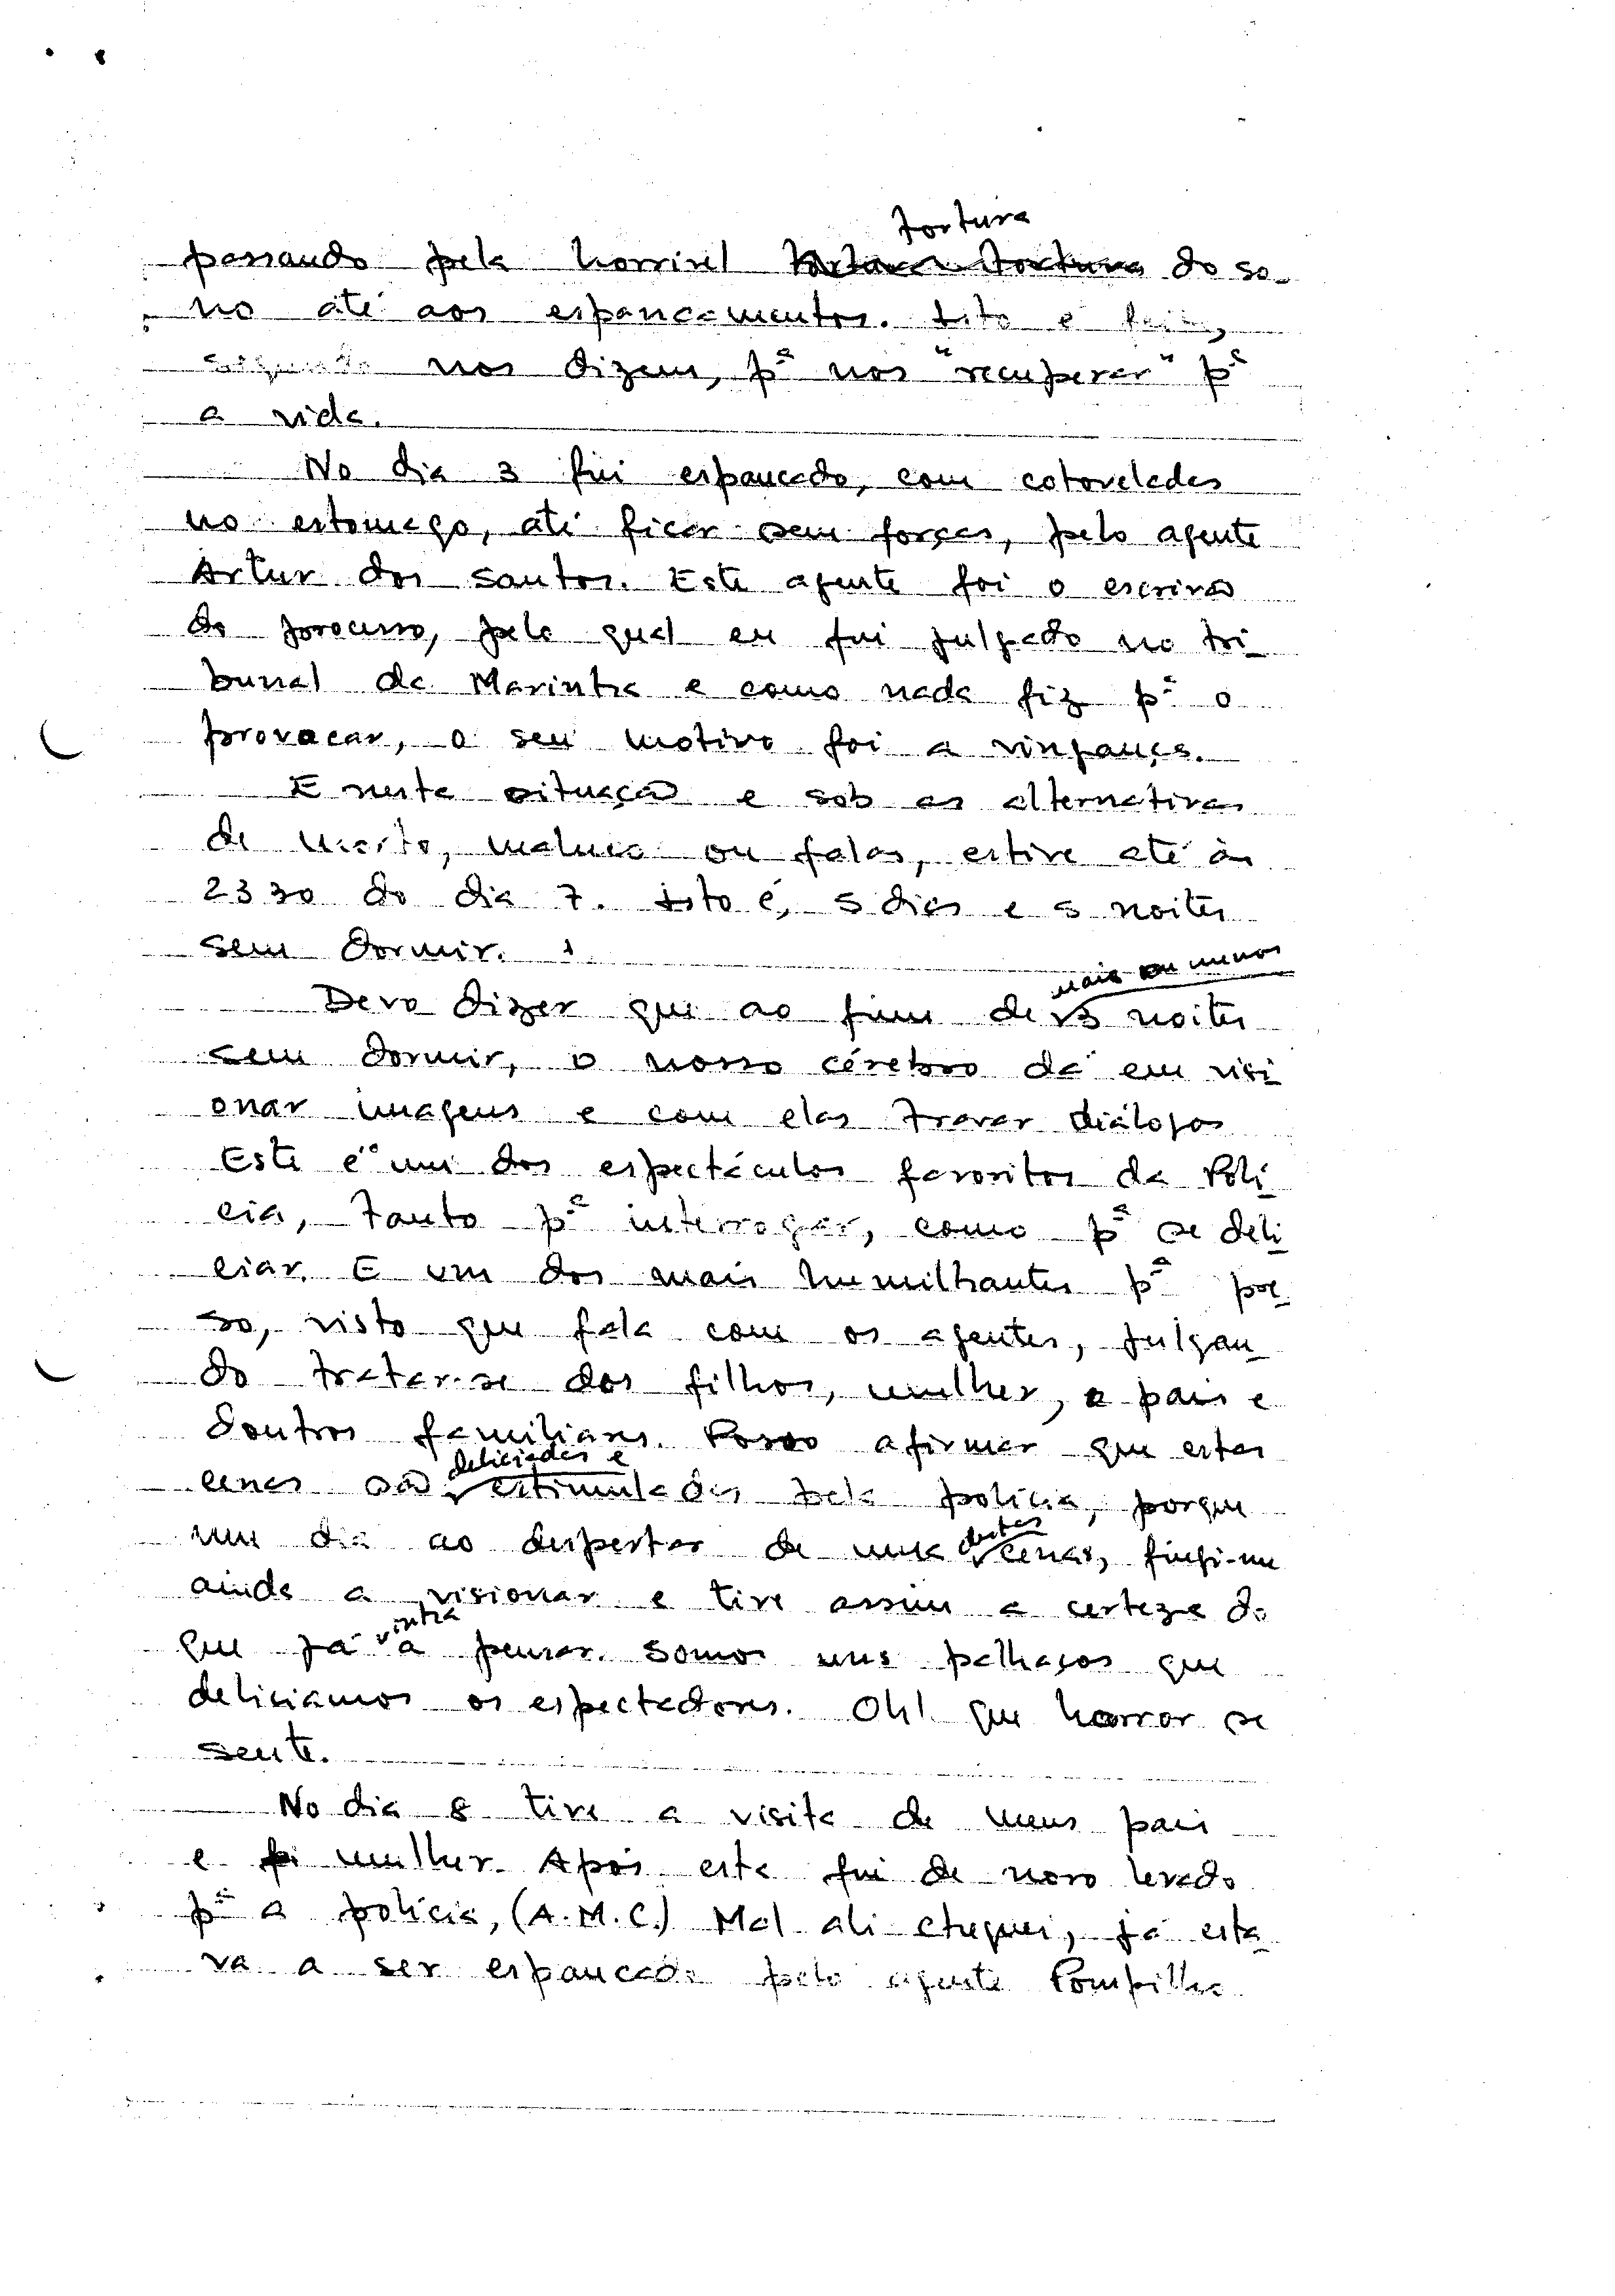 tortura
passando pela horrivel do so-
no até aos espancamentos. Isto é feito,
segundo nos dizem, pª nos "recuperar" pª
a vida.
No dia 3 fui espancado, com cotoveladas
no estomago, até ficar sem forças, pelo agente
Artur dos Santos. Este agente foi o escrivão
do processo, pelo qual eu fui julgado no tri
bunal da Marinha e como nada fiz pª o
provocar, o seu motivo foi a vingança.
E nesta situação e sob as alternativas
de morto, maluco ou falas, estive até às
2330 do dia 7. Isto é, 5 dias e 5 noites
sem dormir.
mais ou menos
Devo dizer que ao fim de 3 noites
sem dormir, o nosso cérebro dá em visi
onar imagens e com elas travar diálogos
Este é um dos espectáculos favoritos da Polí
cia, tanto pª interrogar, como pª se deli
ciar. E um dos mais humilhantes pª pre
so, visto que fala com os agentes, julgan
do tratar-se dos filhos, mulher, pais e
doutros familiares. Posso afirmar que estas
deliciadas e
cenas são estimuladas pela polícia, porque
um dia ao despertar de uma destas cenas, fingi-me
ainda a visionar e tive assim a certeza do
que já vinha a pensar. Somos uns palhaços que
deliciamos os espectadores. Oh! que horror se
sente.
No dia 8 tive a visita de meus pais
e mulher. Após esta fui de novo levado
pª a polícia, (A.M.C.) Mal ali cheguei, já esta
va a ser espancado pelo agente Pompilho